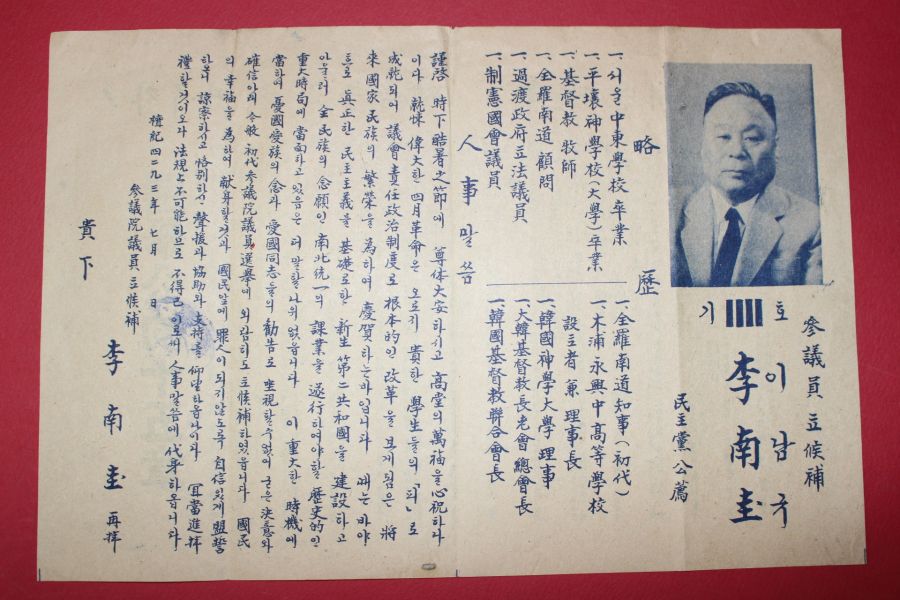 參議員 立候補
기 IIII 호
이남규
李南圭
民主黨 公薦
略歷
一. 서울 中東學校 卒業
一. 平壤神學校(大學) 卒業
一. 基督敎 牧師
一. 全羅南道 顧問
一. 過渡政府 立法議員
一. 制憲國會議員
一. 全羅南道知事(初代)
一. 木浦永興中高等學校
設立者 兼 理事長
一. 韓國神學大學 理事
一. 大韓基督敎長老會 總會長
一. 韓國基督敎聯合會長
人事말씀
謹啓 時下 酷暑之節에 尊体大安하시고 高堂의 萬福을 心祝하나
이다 就悚 偉大한 四月革命은 오로지 貴한 學生들의 「피」로
成就되어 議會責任政治制度로 根本的인 改革을 보게됨은 將
來 國家民族의 繁榮을 為하여 慶賀하는바입니다 때는 바야
흐로 眞正한 民主主義를 基礎로한 新生 第二共和國을 建設하고
아울러 全民族의 念願인 南北統一의 課業을 遂行하여야할 歷史的인
重大時局에 當面하고 있음은 더 말할나위 없읍니다 이 重大한 時機에
當하여 憂國愛族의 念과 愛國同志들의 勸告로 坐視할수없어 굳은 決意와
確信아래 今般 初代參議院議員選擧에 외람히도 立候補하였읍니다 國民
의 幸福을 為하여 献身할것과 國民앞에 罪人이 되지않도록 自信있게 盟誓
하오니 諒察하시고 恪別하신 聲援과 協助와 支持를 仰望하옵나이다 宜當進拜
禮할것이오나 法規上不可能하므로 不得已 이로써 人事말씀에 代身하옵니다
檀紀四二九三年 七月 日
參議院議員 立候補
李南圭 再拜
貴下